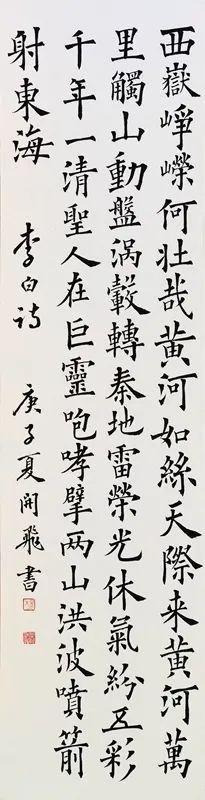 西嶽崢嶸何壮哉黄河如絲天際来黄河萬
里觸山動盤渦轂轉秦地雷榮光休氣紛五彩
千年一清聖人在巨靈咆哮擘两山洪波噴箭
射東海 李白詩 庚子夏開飛書